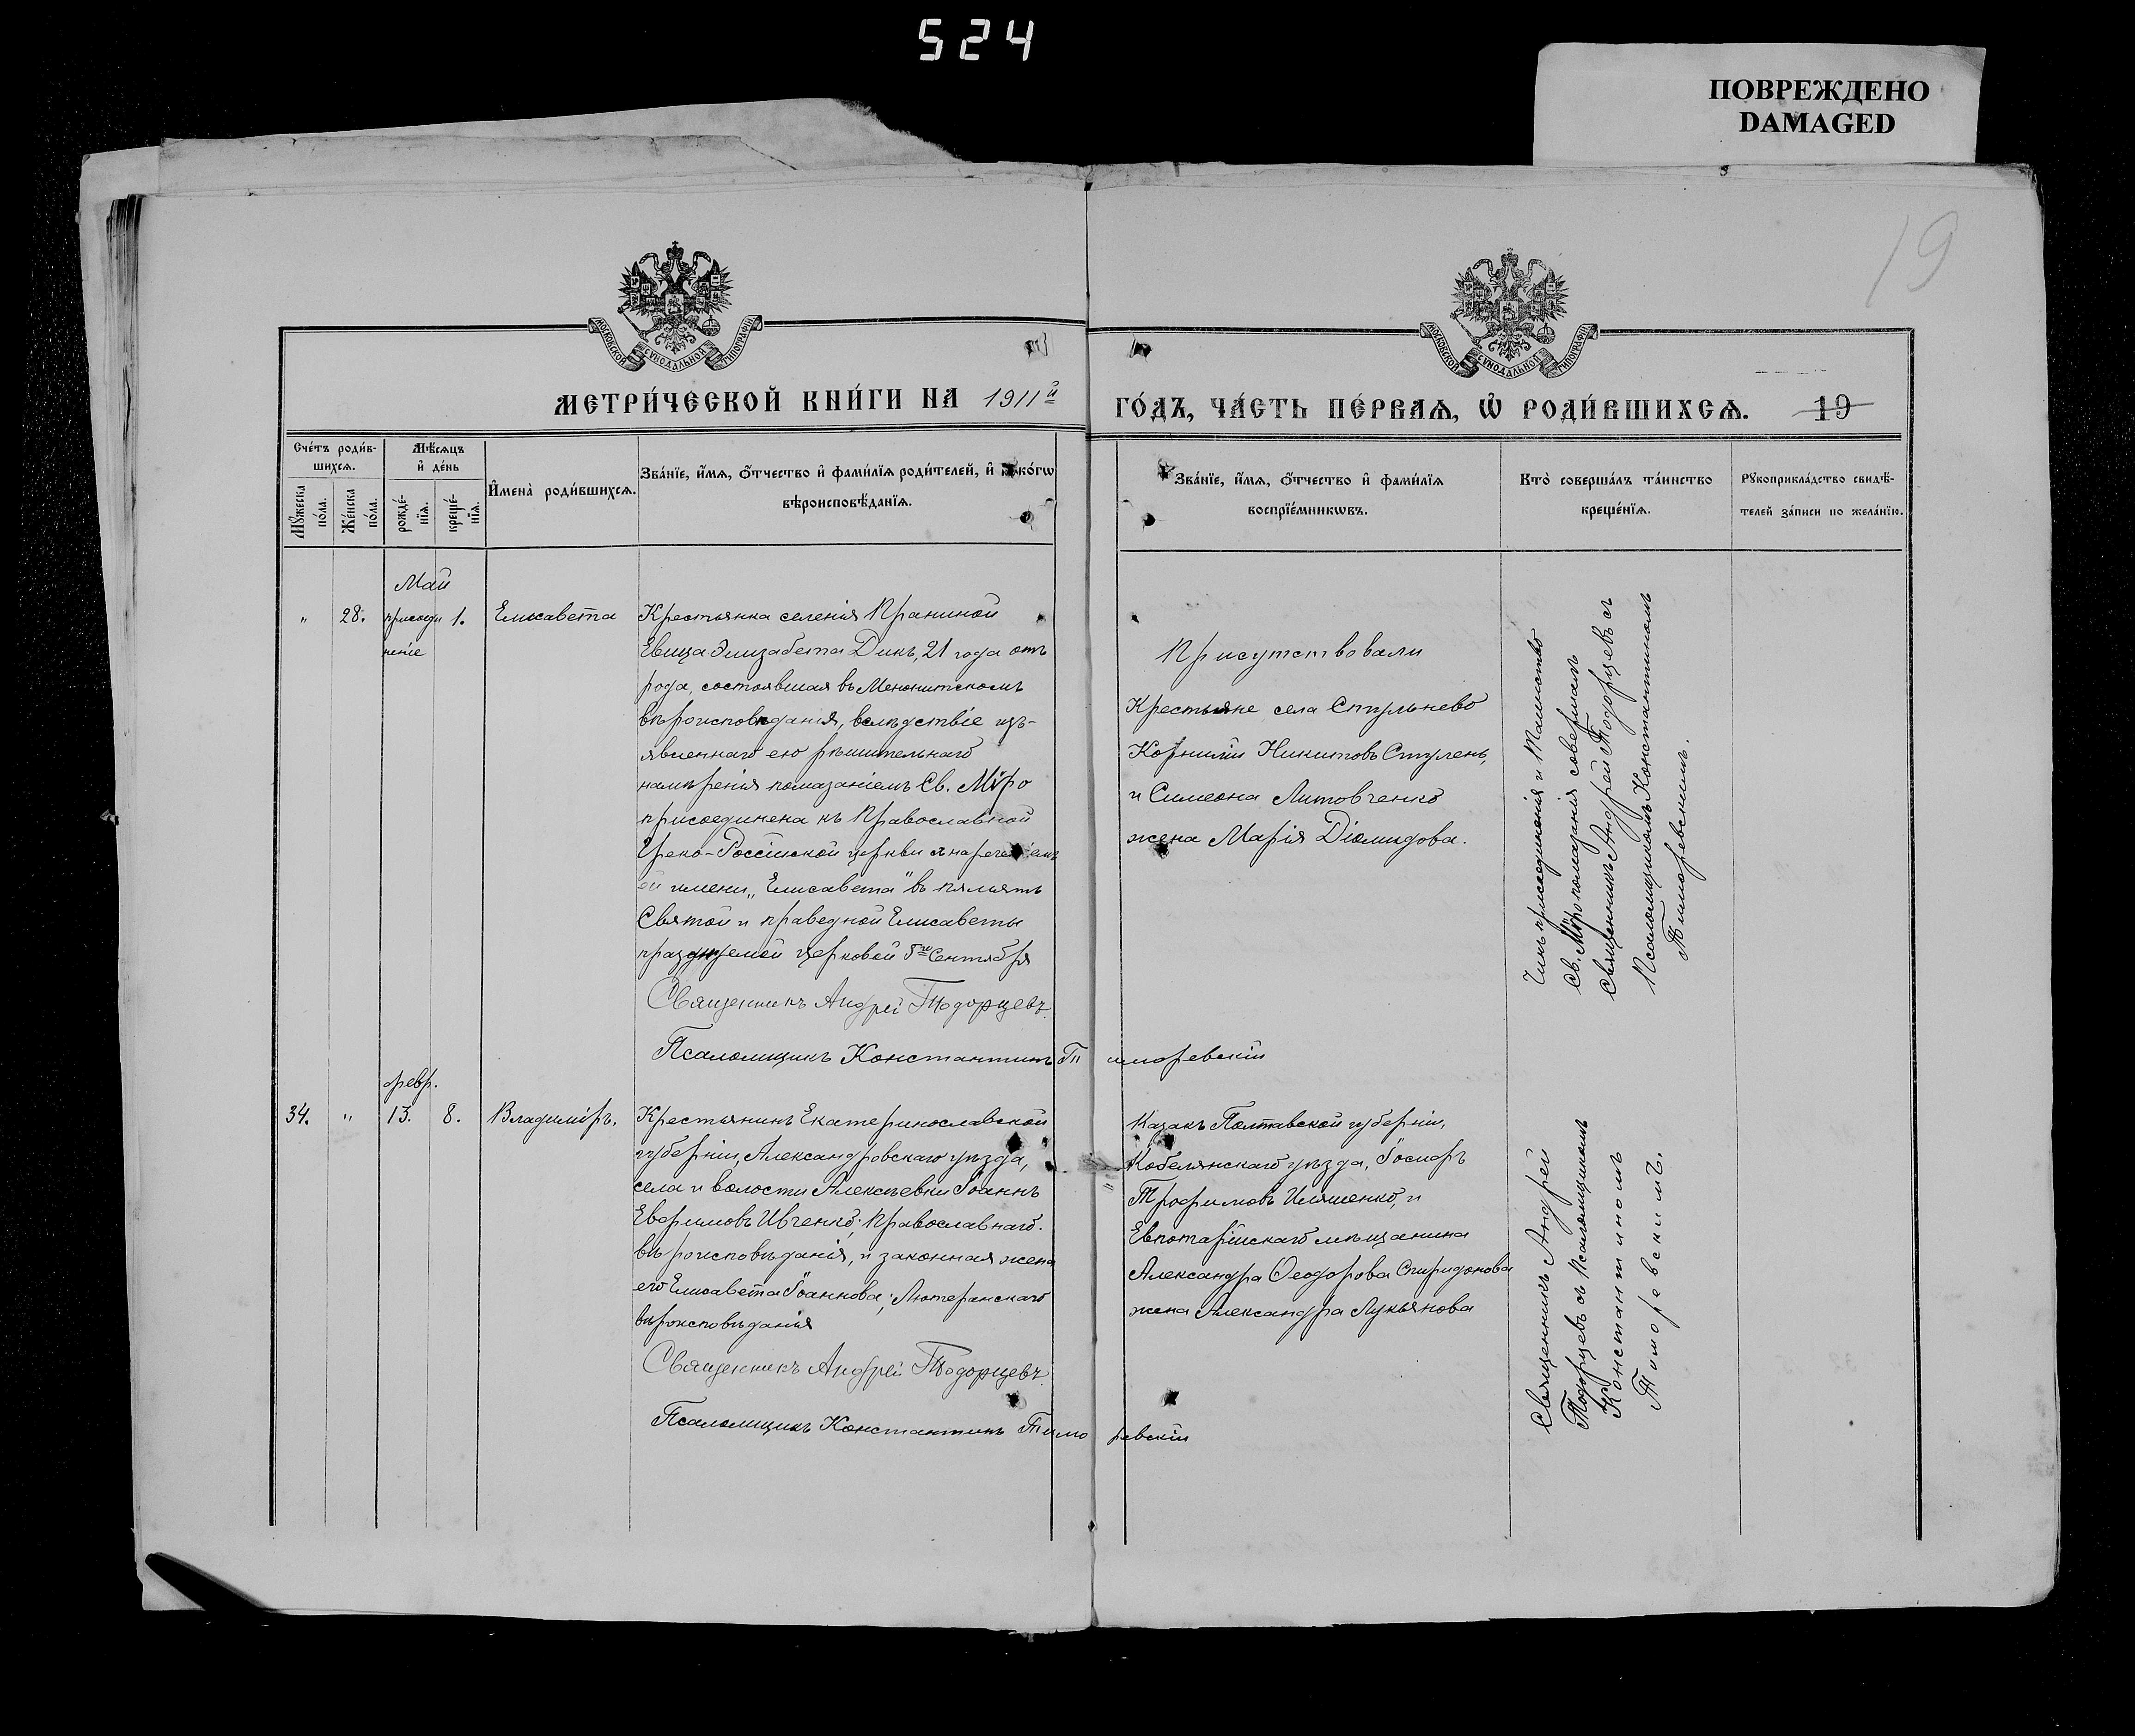 524
ПОВРЕЖДЕНО
DAMAGED
19
МОСКОВСКОЙ СУНОДАЛЬНОЙ ТИПОГРАФІИ
МОСКОВСКОЙ СУНОДАЛЬНОЙ ТИПОГРАФІИ
МЕТРИ́ЧЕСКОЙ КНИ́ГИ НА 1911й ГО́ДЪ, ЧА́СТЬ ПЕ́РВАѦ, Ѡ҆ РОДИ́ВШИХСѦ. 19
Сче́тъ роди́в-
шихсѧ.
Мꙋ́жеска по́ла.
Же́нска по́ла.
Мѣ́сѧцъ
и҆ де́нь
рожде́-
нїѧ.
креще́-
нїѧ.
И҆мена̀ роди́вшихсѧ.
Зва́нїе, и҆́мѧ, ѻ҆́тчество и҆ фами́лїѧ роди́телей, и҆ како́гѡ
вѣроисповѣ́данїѧ.
Зва́нїе, и҆́мѧ, ѻ҆́тчество и҆ фами́лїѧ
воспрїе́мникѡвъ.
Кто̀ соверша́лъ та́инство
креще́нїѧ.
Рꙋкоприкла́дство свидѣ́-
телей за́писи по жела́нїю.
Май
" 28. присоеди 1. Елисавета
нение
Крестьянка селенія
Елизабета Дикъ, 21 года отъ
рода, состоявшая въ Менонитскомъ
вѣроисповѣданія, вслѣдствіе изъ-
явленнаго ею рѣшительнаго
намѣренія помазаніемъ Св. Мѵро
присоединена къ Православной
Греко-Россійской церкви с нареченіемъ
ей имени „Елисавета" въ память
Святой и праведной Елисаветы
празднуемой церковой 5го Сентября
Священникъ Андрей Тодорцевъ.
Псаломщикъ Константинъ Тиморевскій
Присутствовали
Крестьяне села Стульнево
Корнилій Никитовъ Стулень,
и Симеона Литовченко
жена Марія Діомидова.
Чинъ присоединенія и Таинство
Св. Мѵропомазанія совершалъ
Священникъ Андрей Тодорцевъ съ
Псаломщикомъ Константиномъ
Тиморевскимъ.
февр.
34. " 13. 8. Владиміръ.
Крестьянинъ Екатеринославской
губерніи, Александровскаго уѣзда,
села и волости Алексѣевки Іоаннъ
Евфимовъ Ивченко; Православнаго.
вѣроисповѣданія, и законная жена
его Елисавета Іоаннова; Лютеранскаго
вѣроисповѣданія
Священникъ Андрей Тодорцевъ.
Псаломщикъ Константинъ Тиморевскій
Казакъ Полтавской губерніи,
Кобелянскаго уѣзда, Іосифъ
Трофимовъ Ильяшенко, и
Евпаторійскаго мѣщанина
Александра Ѳеодорова Спиридонова
жена Александра Лукьянова
Священникъ Андрей
Тодорцевъ съ Псаломщикомъ
Константиномъ
Тиморевскимъ.